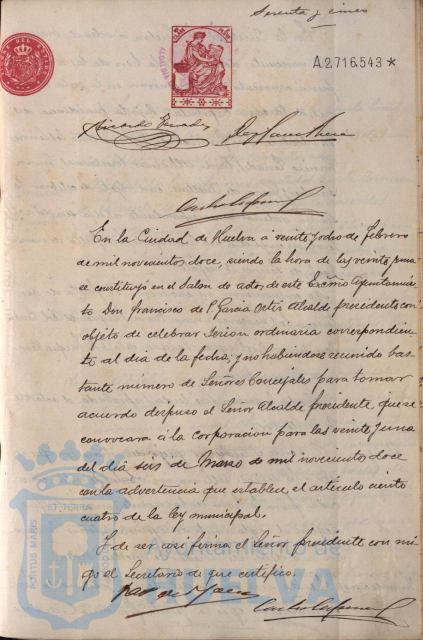 Setenta y cinco
A.2.716.543*
En la Ciudad de Huelva á veinte y ocho de Febrero
de mil novecientos doce, siendo la hora de las veinte y una
se constituyó en el Salon de actos de este Excmo Ayuntamien
to Don Francisco de P. Garcia Ortiz Alcalde presidente con
objeto de celebrar sesion ordinaria correspondien
te al dia de la fecha; y no habiendose reunido bas
tante número de Señores Concejales para tomar
acuerdo dispuso el Señor Alcalde presidente que se
convocara á la corporacion para las veinte y una
del dia seis de Marzo de mil novecientos doce
con la advertencia que establece el artículo ciento
cuatro de la ley municipal.
Y de ser asi firma el Señor presidente con mi
go el Secretario de que certifico.
PORTUS MARIS
ET TERRAE
Ayuntamiento de
HUELVA